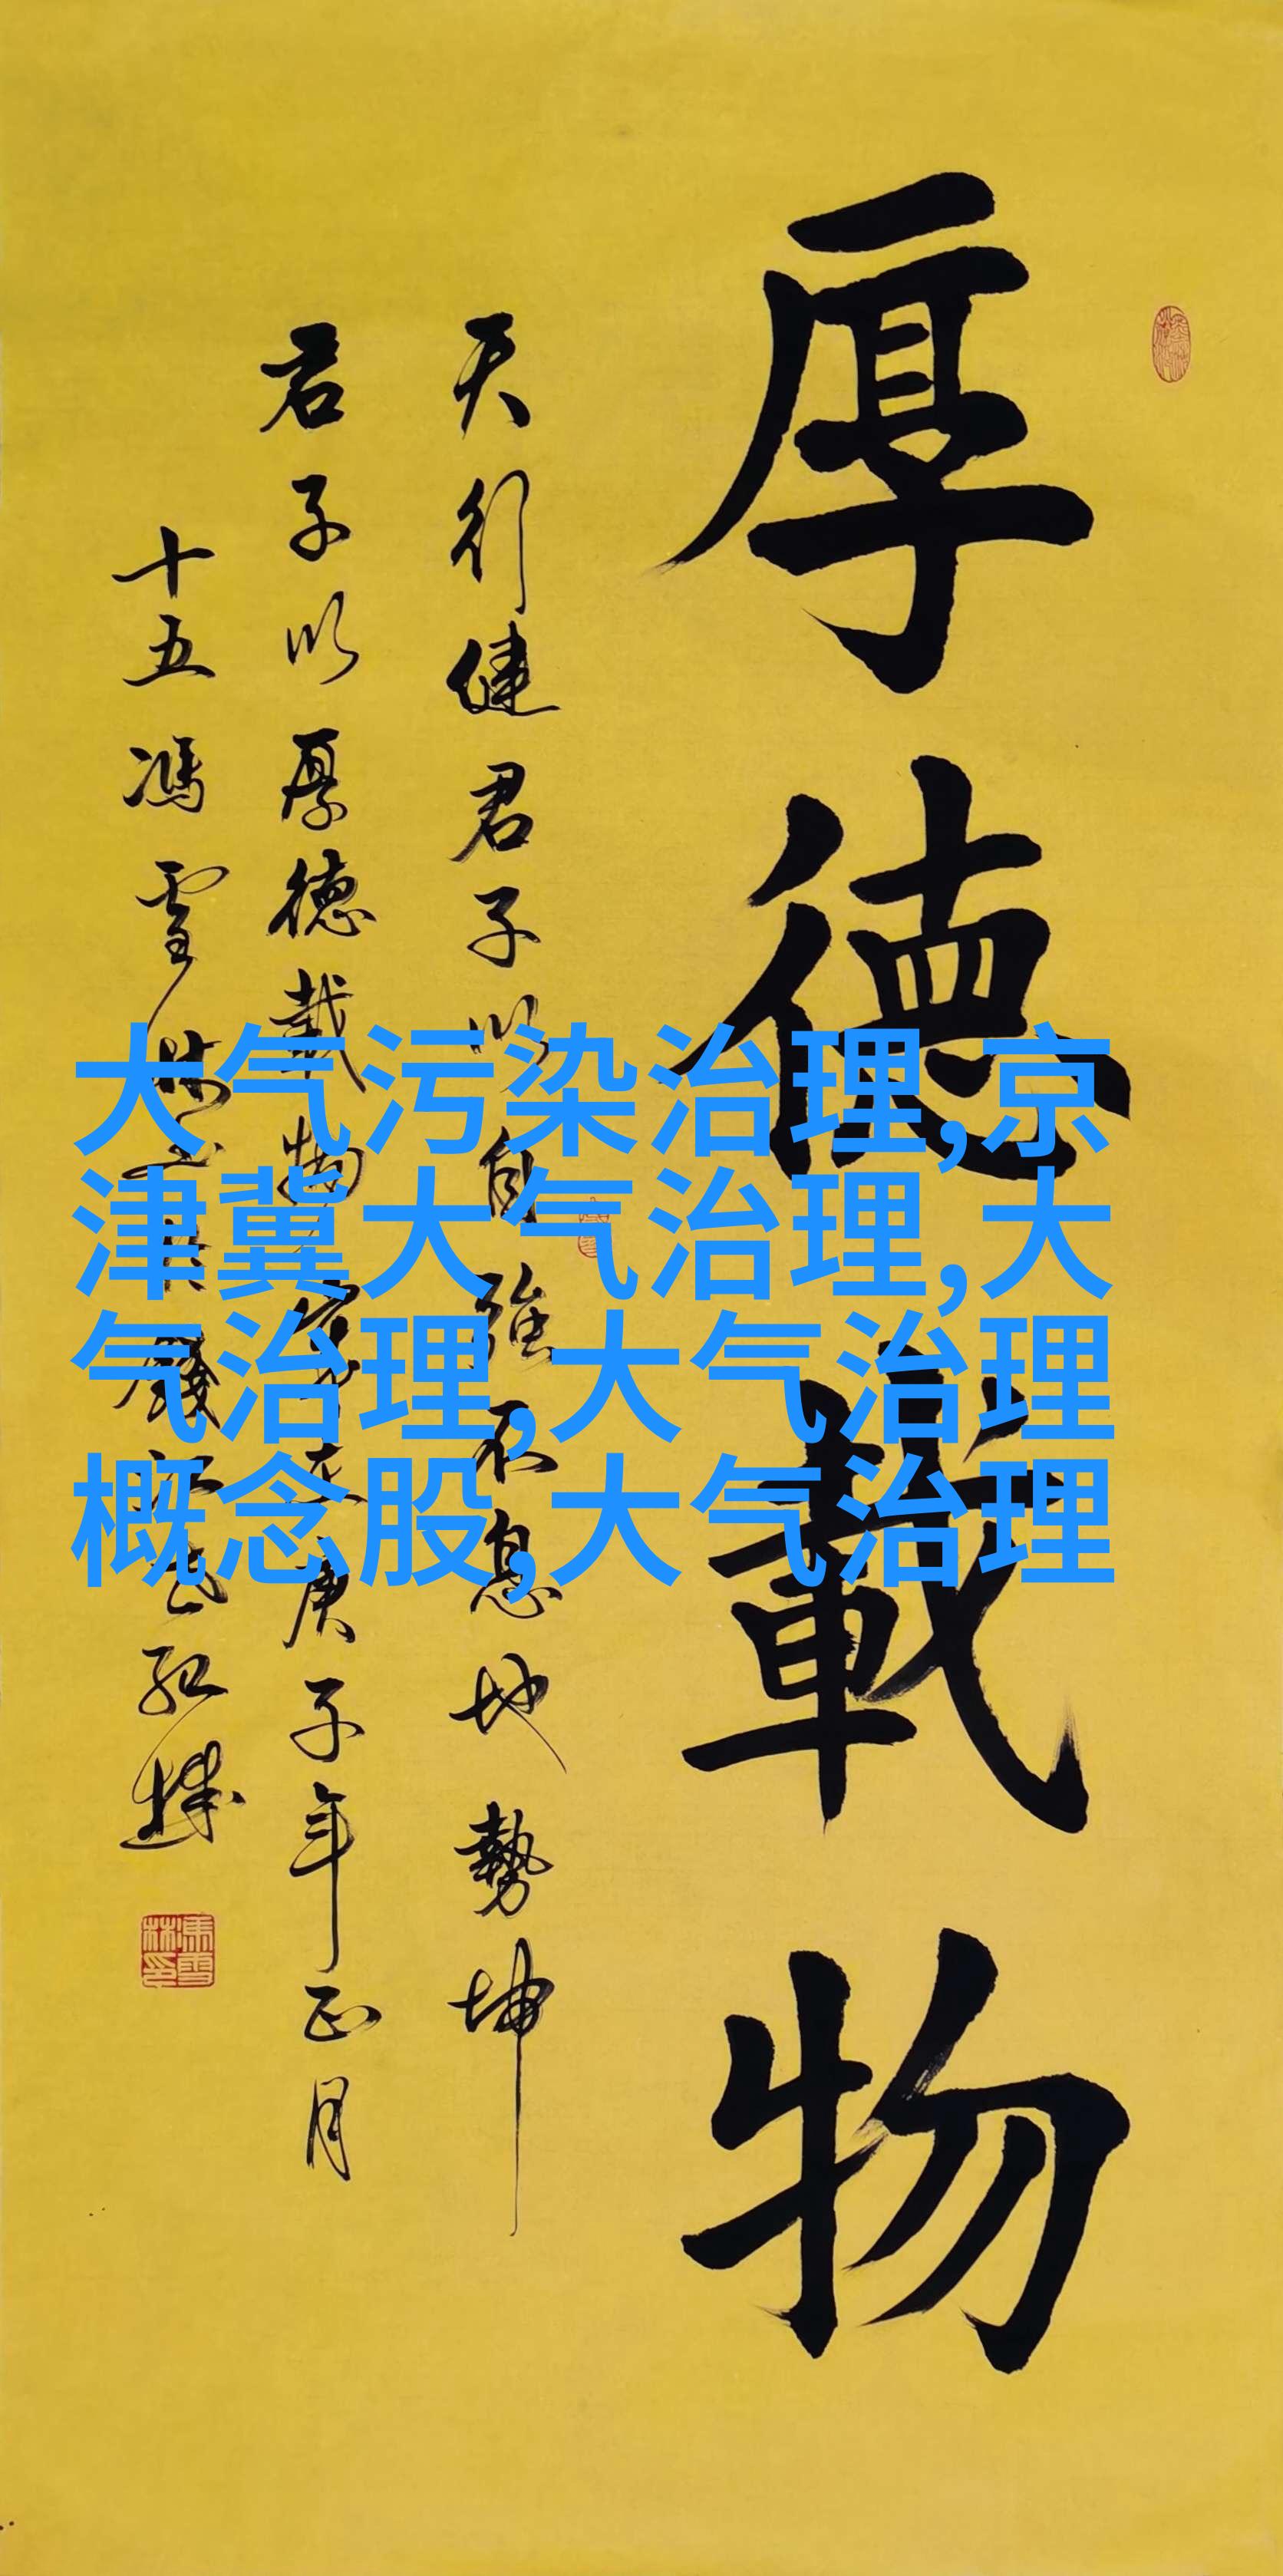 厚德載物
天行健君子以自強不息地勢坤
君子以厚德載物 庚子年正月
十五馮雪林
大气污染治理,京
津冀大气治理,大
气治理,大气治理
概念股,大气治理
馮雪林印